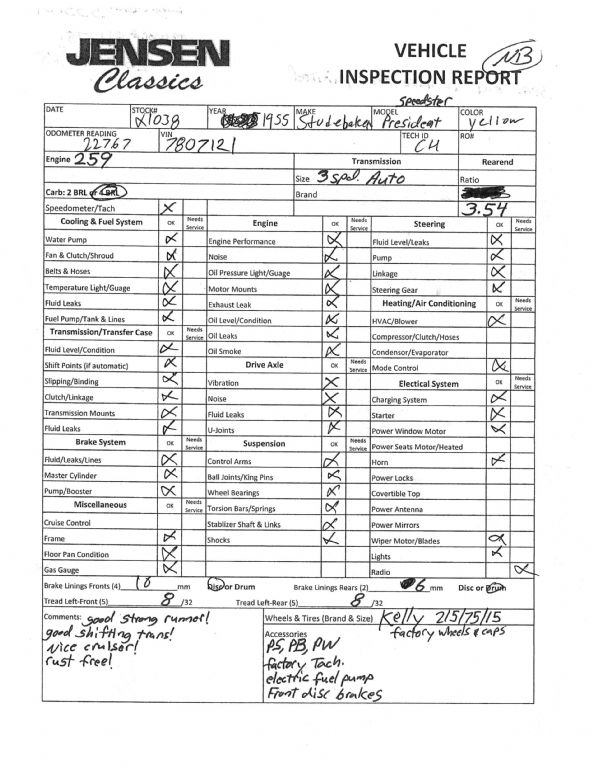 JENSEN
Classics
VEHICLE
INSPECTION REPORT
NB
DATE STOCK# YEAR MAKE MODEL COLOR
1038 1955 Studebaker President Speedster yellow
ODOMETER READING VIN TECH ID RO#
22767 7807121 CH
Engine 259 Transmission Rearend
Size 3 spd. Auto Ratio
Carb: 2 BRL or 4 BRL Brand
Speedometer/Tach 3.54
Cooling & Fuel System OK Needs Service Engine OK Needs Service Steering OK Needs Service
Water Pump Engine Performance Fluid Level/Leaks
Fan & Clutch/Shroud Noise Pump
Belts & Hoses Oil Pressure Light/Guage Linkage
Temperature Light/Guage Motor Mounts Steering Gear
Fluid Leaks Exhaust Leak Heating/Air Conditioning OK Needs Service
Fuel Pump/Tank & Lines Oil Level/Condition HVAC/Blower
Transmission/Transfer Case OK Needs Service Oil Leaks Compressor/Clutch/Hoses
Fluid Level/Condition Oil Smoke Condensor/Evaporator
Shift Points (if automatic) Drive Axle OK Needs Service Mode Control
Slipping/Binding Vibration Electical System OK Needs Service
Clutch/Linkage Noise Charging System
Transmission Mounts Fluid Leaks Starter
Fluid Leaks U-Joints Power Window Motor
Brake System OK Needs Service Suspension OK Needs Service Power Seats Motor/Heated
Fluid/Leaks/Lines Control Arms Horn
Master Cylinder Ball Joints/King Pins Power Locks
Pump/Booster Wheel Bearings Covertible Top
Miscellaneous OK Needs Service Torsion Bars/Springs Power Antenna
Cruise Control Stablizer Shaft & Links Power Mirrors
Frame Shocks Wiper Motor/Blades
Floor Pan Condition Lights
Gas Gauge Radio
Brake Linings Fronts (4) 10 mm Disc or Drum Brake Linings Rears (2) 6 mm Disc or Drum
Tread Left-Front (5) 8 /32 Tread Left-Rear (5) 8 /32
Comments: good strong runner! Wheels & Tires (Brand & Size) Kelly 215/75/15
good shifting trans! Accessories factory wheels & caps
Nice cruiser! PS, PB, PW
rust free! factory Tach.
electric fuel pump
Front disc brakes